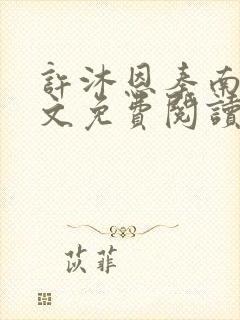 許沐恩秦南
文免費閱讀
苡菲